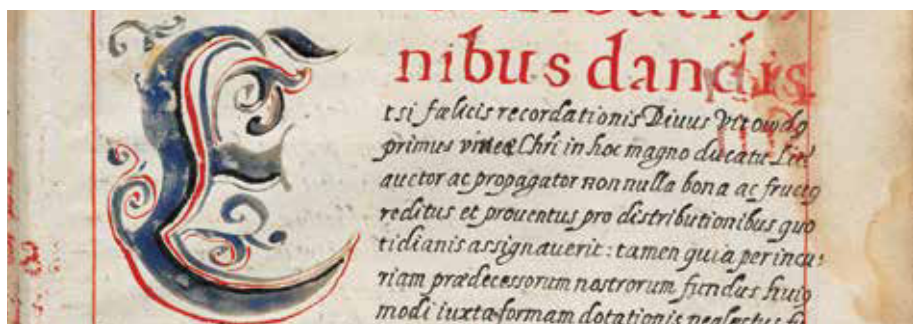 nibus dandis
Etsi fælicis recordationis Diuus
primus vineæ Chri in hoc magno ducatu
auctor ac propagator non nulla bona ac fructꝰ
reditus et prouentus pro distributionibus quo
tidianis assignauerit : tamen quia per incu
riam prædecessorum nostrorum fundus huiꝰ
modi iuxta formam dotationis neglectus